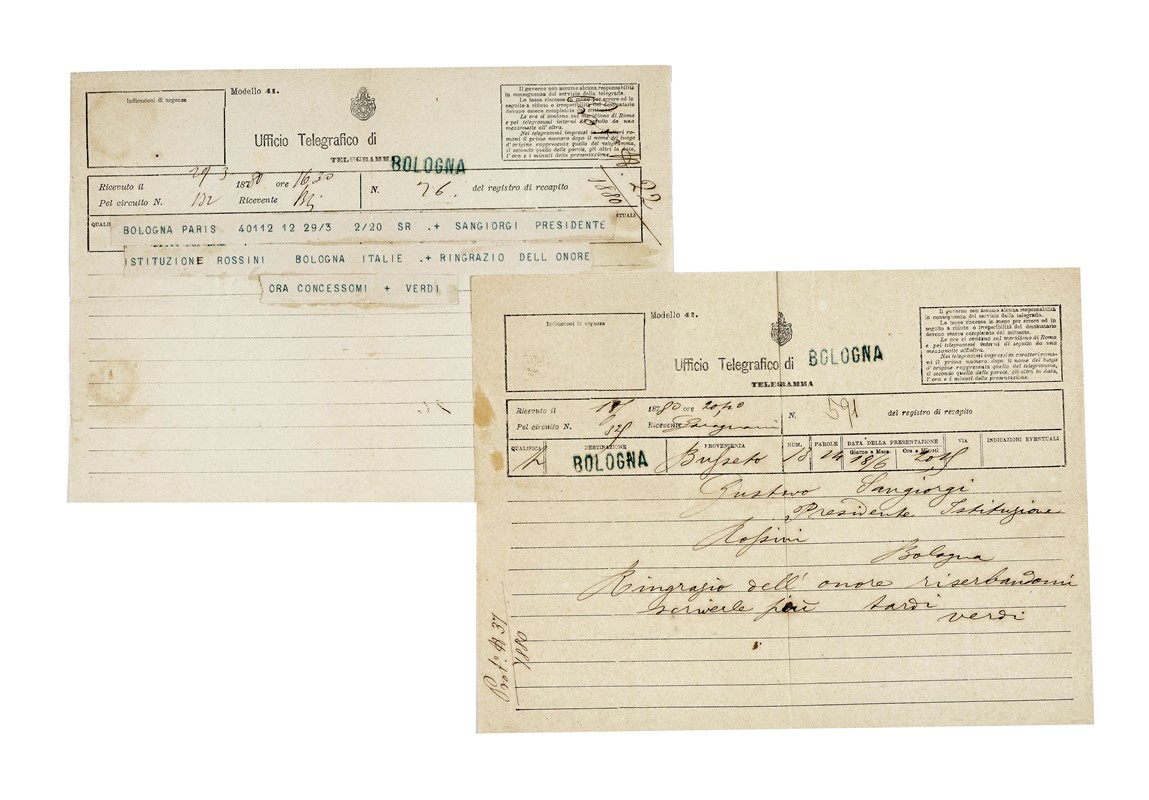 Modello 41.
Indicazioni di urgenza
Ufficio Telegrafico di
TELEGRAMMA
BOLOGNA
Il governo non assume alcuna responsabilità
in conseguenza del servizio della telegrafia.
Le tasse riscosse in meno per errore od in
seguito a rifiuto o irreperibilità del destinatario
devono essere completate dal mittente.
Le ore si contano sul meridiano di Roma
e pei telegrammi interni di seguito da una
mezzanotte all'altra.
Nei telegrammi impressi in caratteri romani
il primo numero dopo il nome del luogo
d'origine rappresenta quello del telegramma,
il secondo quello delle parole, gli altri la data,
l'ora e i minuti della presentazione.
Ricevuto il 29/3 1880 ore 16,30
N. 76. del registro di recapito
Pel circuito N. Ricevente
P. 22
1880
BOLOGNA PARIS 40112 12 29/3 2/20 SR .+ SANGIORGI PRESIDENTE
ISTITUZIONE ROSSINI BOLOGNA ITALIE .+ RINGRAZIO DELL ONORE
ORA CONCESSOMI + VERDI
Modello 42.
Indicazioni di urgenza
Ufficio Telegrafico di BOLOGNA
TELEGRAMMA
Il governo non assume alcuna responsabilità
in conseguenza del servizio della telegrafia.
Le tasse riscosse in meno per errore od in
seguito a rifiuto o irreperibilità del destinatario
devono essere completate dal mittente.
Le ore si contano sul meridiano di Roma
e pei telegrammi interni di seguito da una
mezzanotte all'altra.
Nei telegrammi impressi in caratteri romani
il primo numero dopo il nome del luogo
d'origine rappresenta quello del telegramma,
il secondo quello delle parole, gli altri la data,
l'ora e i minuti della presentazione.
Ricevuto il 1880 ore
N. 591 del registro di recapito
Pel circuito N. Ricevente
QUALIFICA DESTINAZIONE PROVENIENZA NUM. PAROLE DATA DELLA PRESENTAZIONE VIA INDICAZIONI EVENTUALI
Giorno e Mese Ore e Minuti
BOLOGNA Busseto 13 14 18/6
Gustavo Sangiorgi
Presidente Istituzione
Rossini
Bologna
Ringrazio dell' onore riserbandomi
scriverle più tardi
verdi
1880